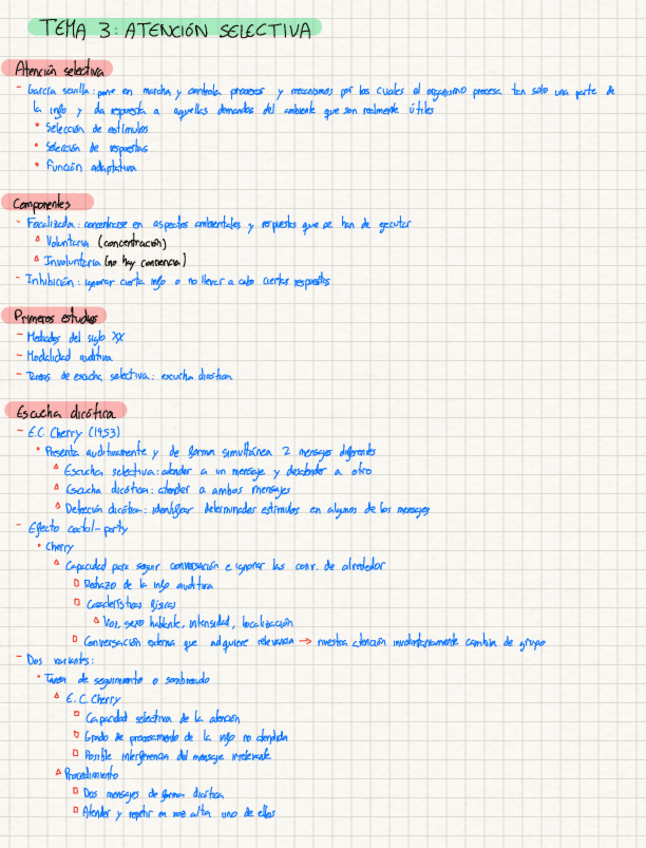 TEMA 3: ATENCIÓN SELECTIVA
Atención selectiva
- García sevilla: pone en marcha y controla procesos y mecanismos por los cuales el organismo procesa tan solo una parte de
la info y da respuesta a aquellas demandas del ambiente que son realmente útiles
• Selección de estímulos
• Selección de respuestas
• Función adaptativa
Componentes
- Focalizada: concentrarse en aspectos ambientales y respuestas que se han de ejecutar
Voluntaria (concentración)
Involuntaria (no hay conciencia)
- Inhibición: ignorar cierta info o no llevar a cabo ciertas respuestas
Primeros estudios
- Mediados del siglo XX
- Modalidad auditiva
- Tareas de escucha selectiva: escucha dicótica
Escucha dicótica
- E.C. Cherry (1953)
• Presenta auditivamente y de forma simultánea 2 mensajes diferentes
Escucha selectiva: atender a un mensaje y desatender a otro
Escucha dicótica: atender a ambos mensajes
Detección dicótica: identificar determinados estímulos en algunos de los mensajes
- Efecto coctal-party
• Cherry
Capacidad para seguir conversación e ignorar las conv. de alrededor
Rechazo de la info auditiva
Características físicas
Voz, sexo hablante, intensidad, localización
Conversación externa que adquiere relevancia → nuestra atención involuntariamente cambia de grupo
- Dos variantes:
• Tarea de seguimiento o sombreado
E.C. Cherry
Capacidad selectiva de la atención
Grado de procesamiento de la info no atendida
Posible interferencia del mensaje irrelevante
Procedimiento
Dos mensajes de forma dicótica
Atender y repetir en voz alta uno de ellos